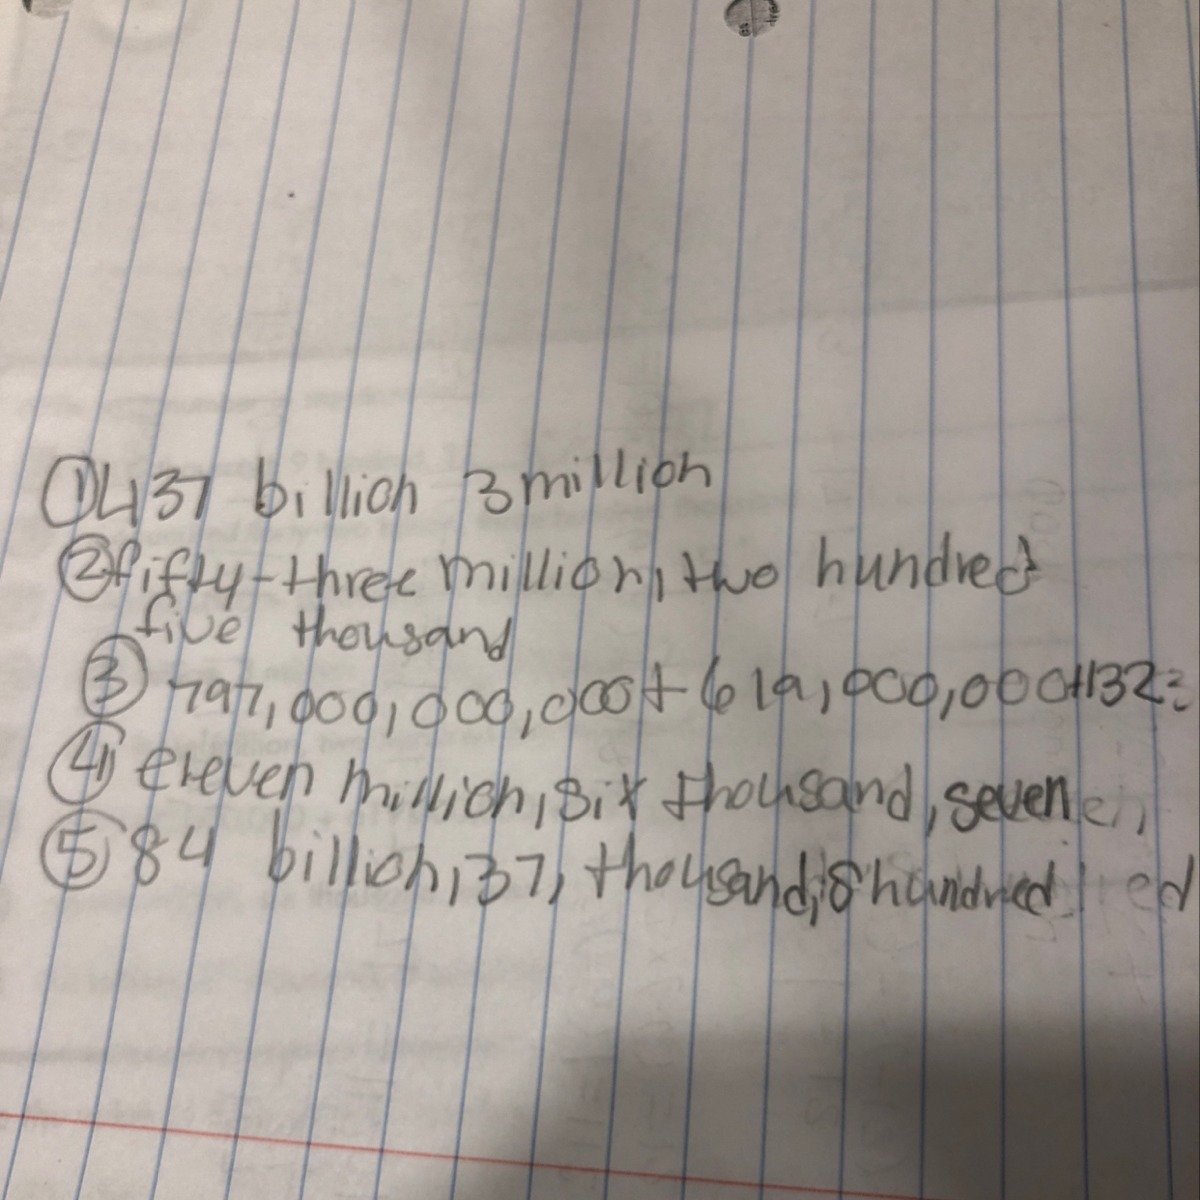 ① 437 billion 3 million
② fifty-three million, two hundred
five thousand
③ 797,000,000,000+619,000,000+132=
④ eleven million, six thousand, seven
⑤ 84 billion, 37, thousand, 8 hundred